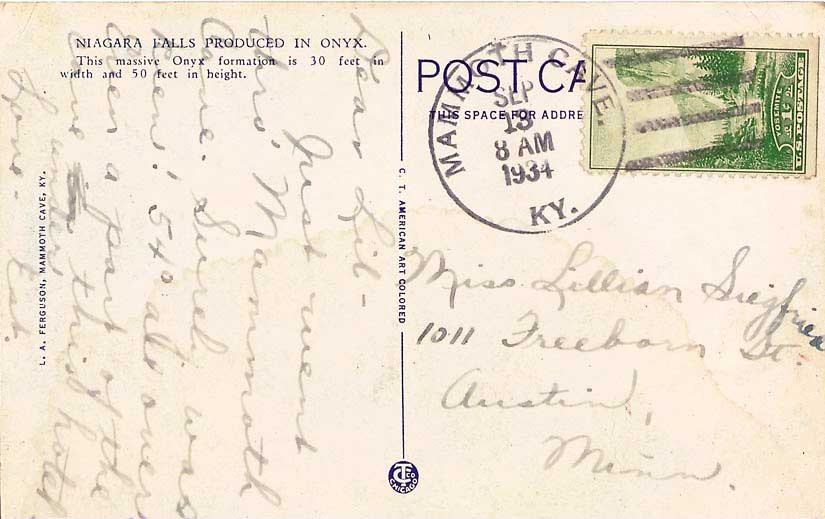 NIAGARA FALLS PRODUCED IN ONYX.
This massive Onyx formation is 30 feet in
width and 50 feet in height.
L. A. FERGUSON, MAMMOTH CAVE, KY.
Dear Lil-
Just went
thro' Mammoth
Cave. Surely was
keen! 54° all over
Even a part of the
Cave under this hotel
Love-
C. T. AMERICAN ART COLORED
CT CO
CHICAGO
POST CA
THIS SPACE FOR ADDRE
MAMMOTH CAVE.
SEP
13
8 AM
1934
KY.
YOSEMITE
1¢
U.S. POSTAGE
Miss Lillian Siegfried
1011 Freeborn St.
Austin,
Minn.